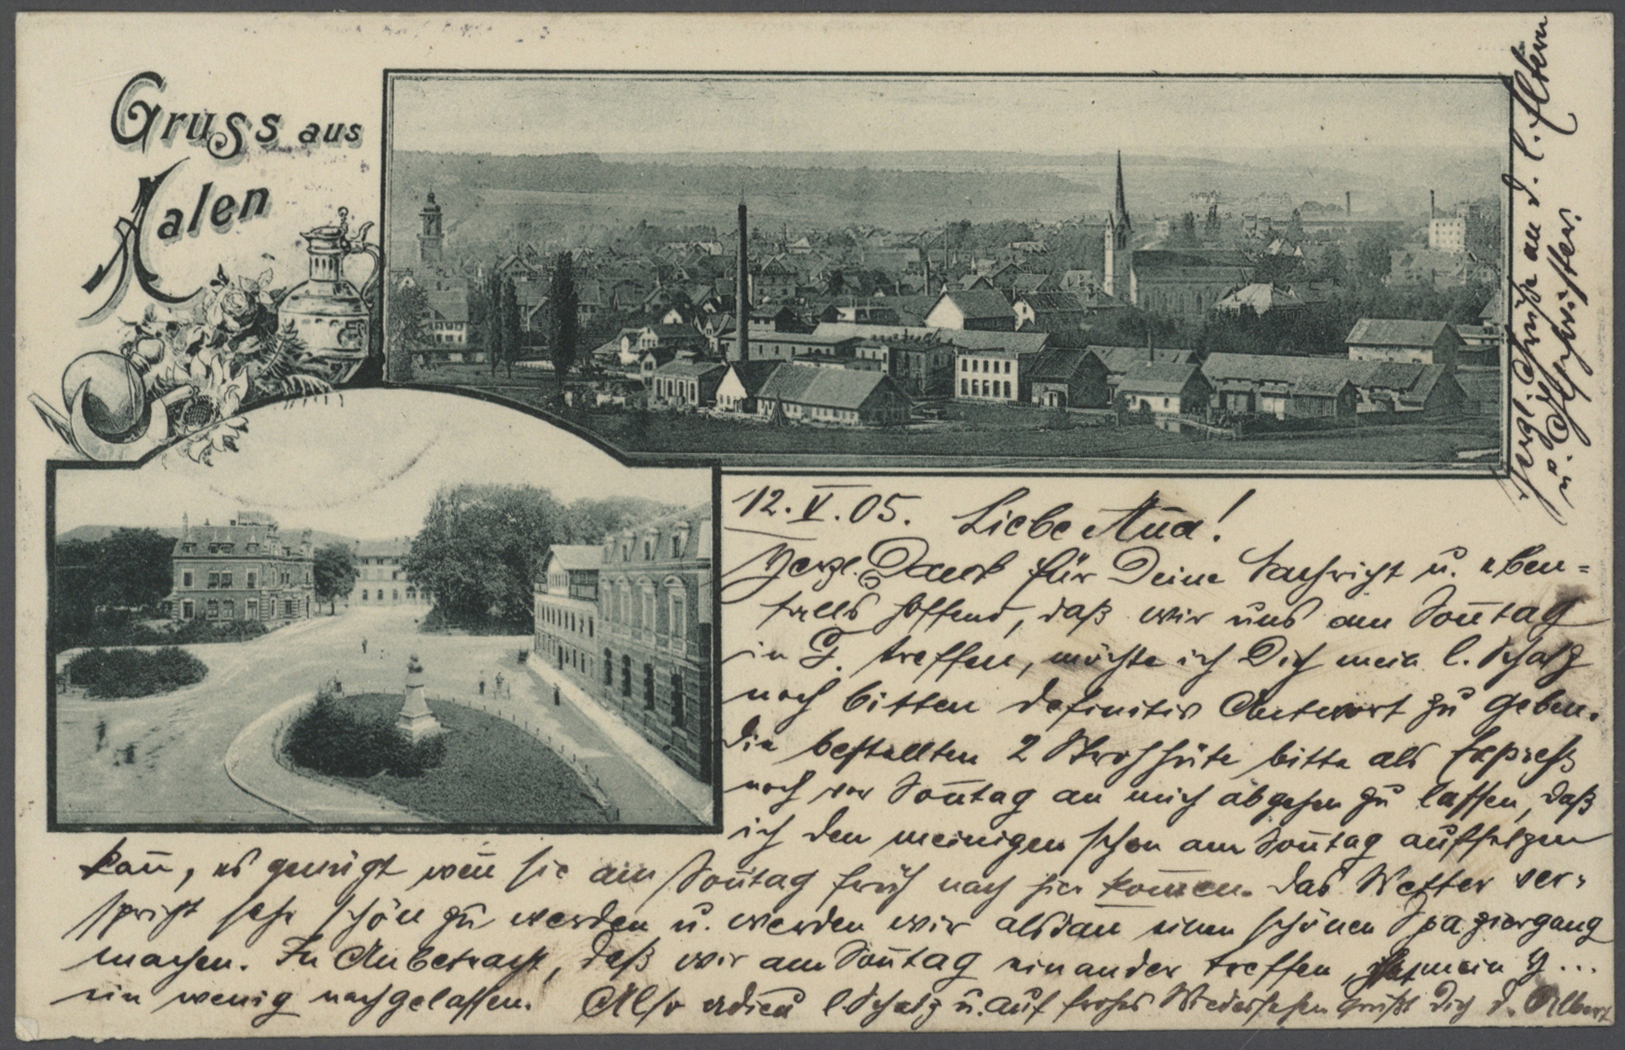 Gruss aus
Aalen
12. V. 05. Liebe
Herzl. Dank für Deine Nachricht u. eben=
falls hoffend, daß wir uns am Son̄tag
in G. treffen, möchte ich Dich mein l. Schatz
noch bitten definitiv Antwort zu geben.
Die bestellten 2 Strohhüte bitte als Expreß
noch vor Son̄tag an mich abgehen zu lassen, daß
ich den meinigen schon am Son̄tag aufsetzen
kan̄, es genügt wen̄ sie am Son̄tag früh nach hier kom̄en. Das Wetter ver-
spricht sehr schön zu werden u. werden wir alsdan̄ einen schönen Spaziergang
machen. In Anbetracht, daß wir am Son̄tag einander treffen, mein
ein wenig nachgelassen. Also adieu l. Schatz u. auf frohes Wiedersehen grüßt Dich d. Albert
Herzl. Grüße an d. l. Eltern
u. Geschwister.